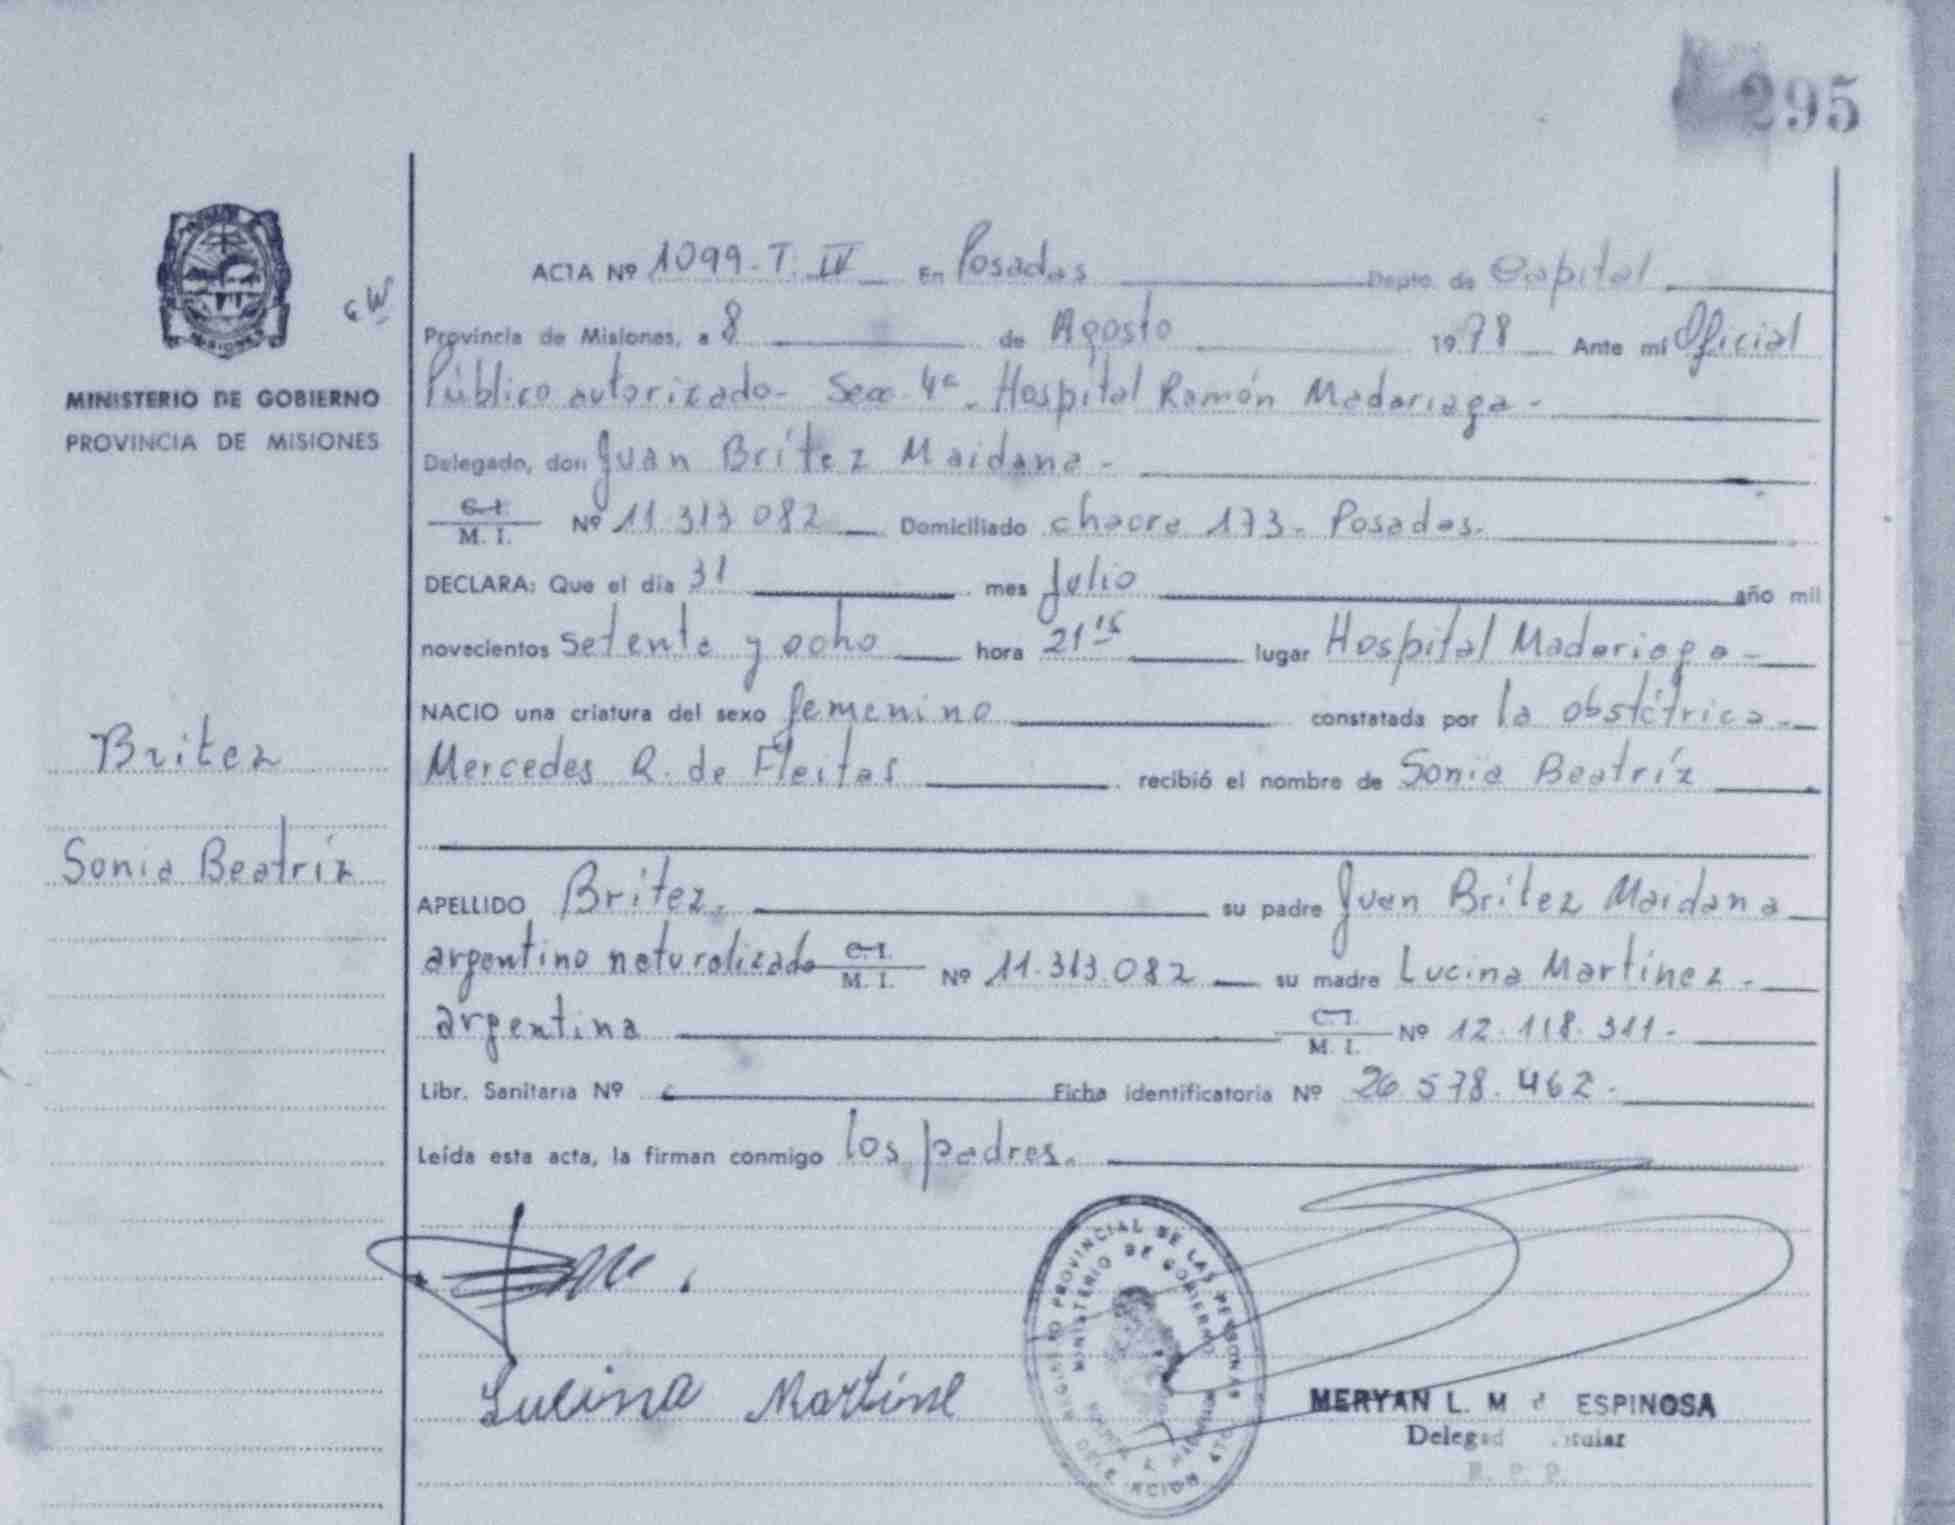 295
ACTA Nº 1099-T. IV En Posadas Depto. de Capital
Provincia de Misiones, a 8 de Agosto 1978 Ante mí Oficial
Público autorizado- Secc. 4ª - Hospital Ramón Madariaga -
Delegado, don Juan Britez Maidana -
C.I. M. I. Nº 11.313.082 Domiciliado chacra 173 - Posadas.
DECLARA: Que el día 31 mes Julio año mil
novecientos setenta y ocho hora 21 15 lugar Hospital Madariaga -
NACIO una criatura del sexo femenino constatada por la obstétrica -
Mercedes R. de Fleitas recibió el nombre de Sonia Beatríz
APELLIDO Britez. su padre Juan Britez Maidana
argentino naturalizado C.I. M. I. Nº 11.313.082 su madre Lucina Martínez -
argentina C.I. M. I. Nº 12.118.311-
Libr. Sanitaria Nº Ficha identificatoria Nº 26.578.462-
Leída esta acta, la firman conmigo los padres.
MINISTERIO DE GOBIERNO
PROVINCIA DE MISIONES
Britez
Sonia Beatríz
Lucina Martine
REGISTRO PROVINCIAL DE LAS PERSONAS
MINISTERIO DE GOBIERNO
MERYAN L. M ESPINOSA